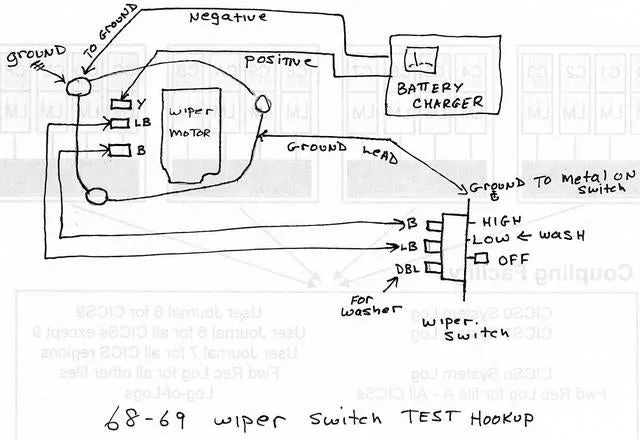 Negative
TO GROUND
GROUND
Positive
BATTERY
CHARGER
Y
LB
B
wiper
MOTOR
GROUND LEAD
GROUND TO Metal ON
Switch
B
LB
DBL
HIGH
LOW ← WASH
OFF
FOR
washer
wiper.
Switch
Coupling Facility
User Journal 6 for CICS9
User Journal 6 for all CICSs except 9
User Journal 7 for all CICS regions
Fwd Rec Log for all other files
Log-of-Logs
CICS0 System Log
CICSn System Log
Fwd Rec Log for file A - All CICSs
68-69 wiper Switch TEST HOOKUP